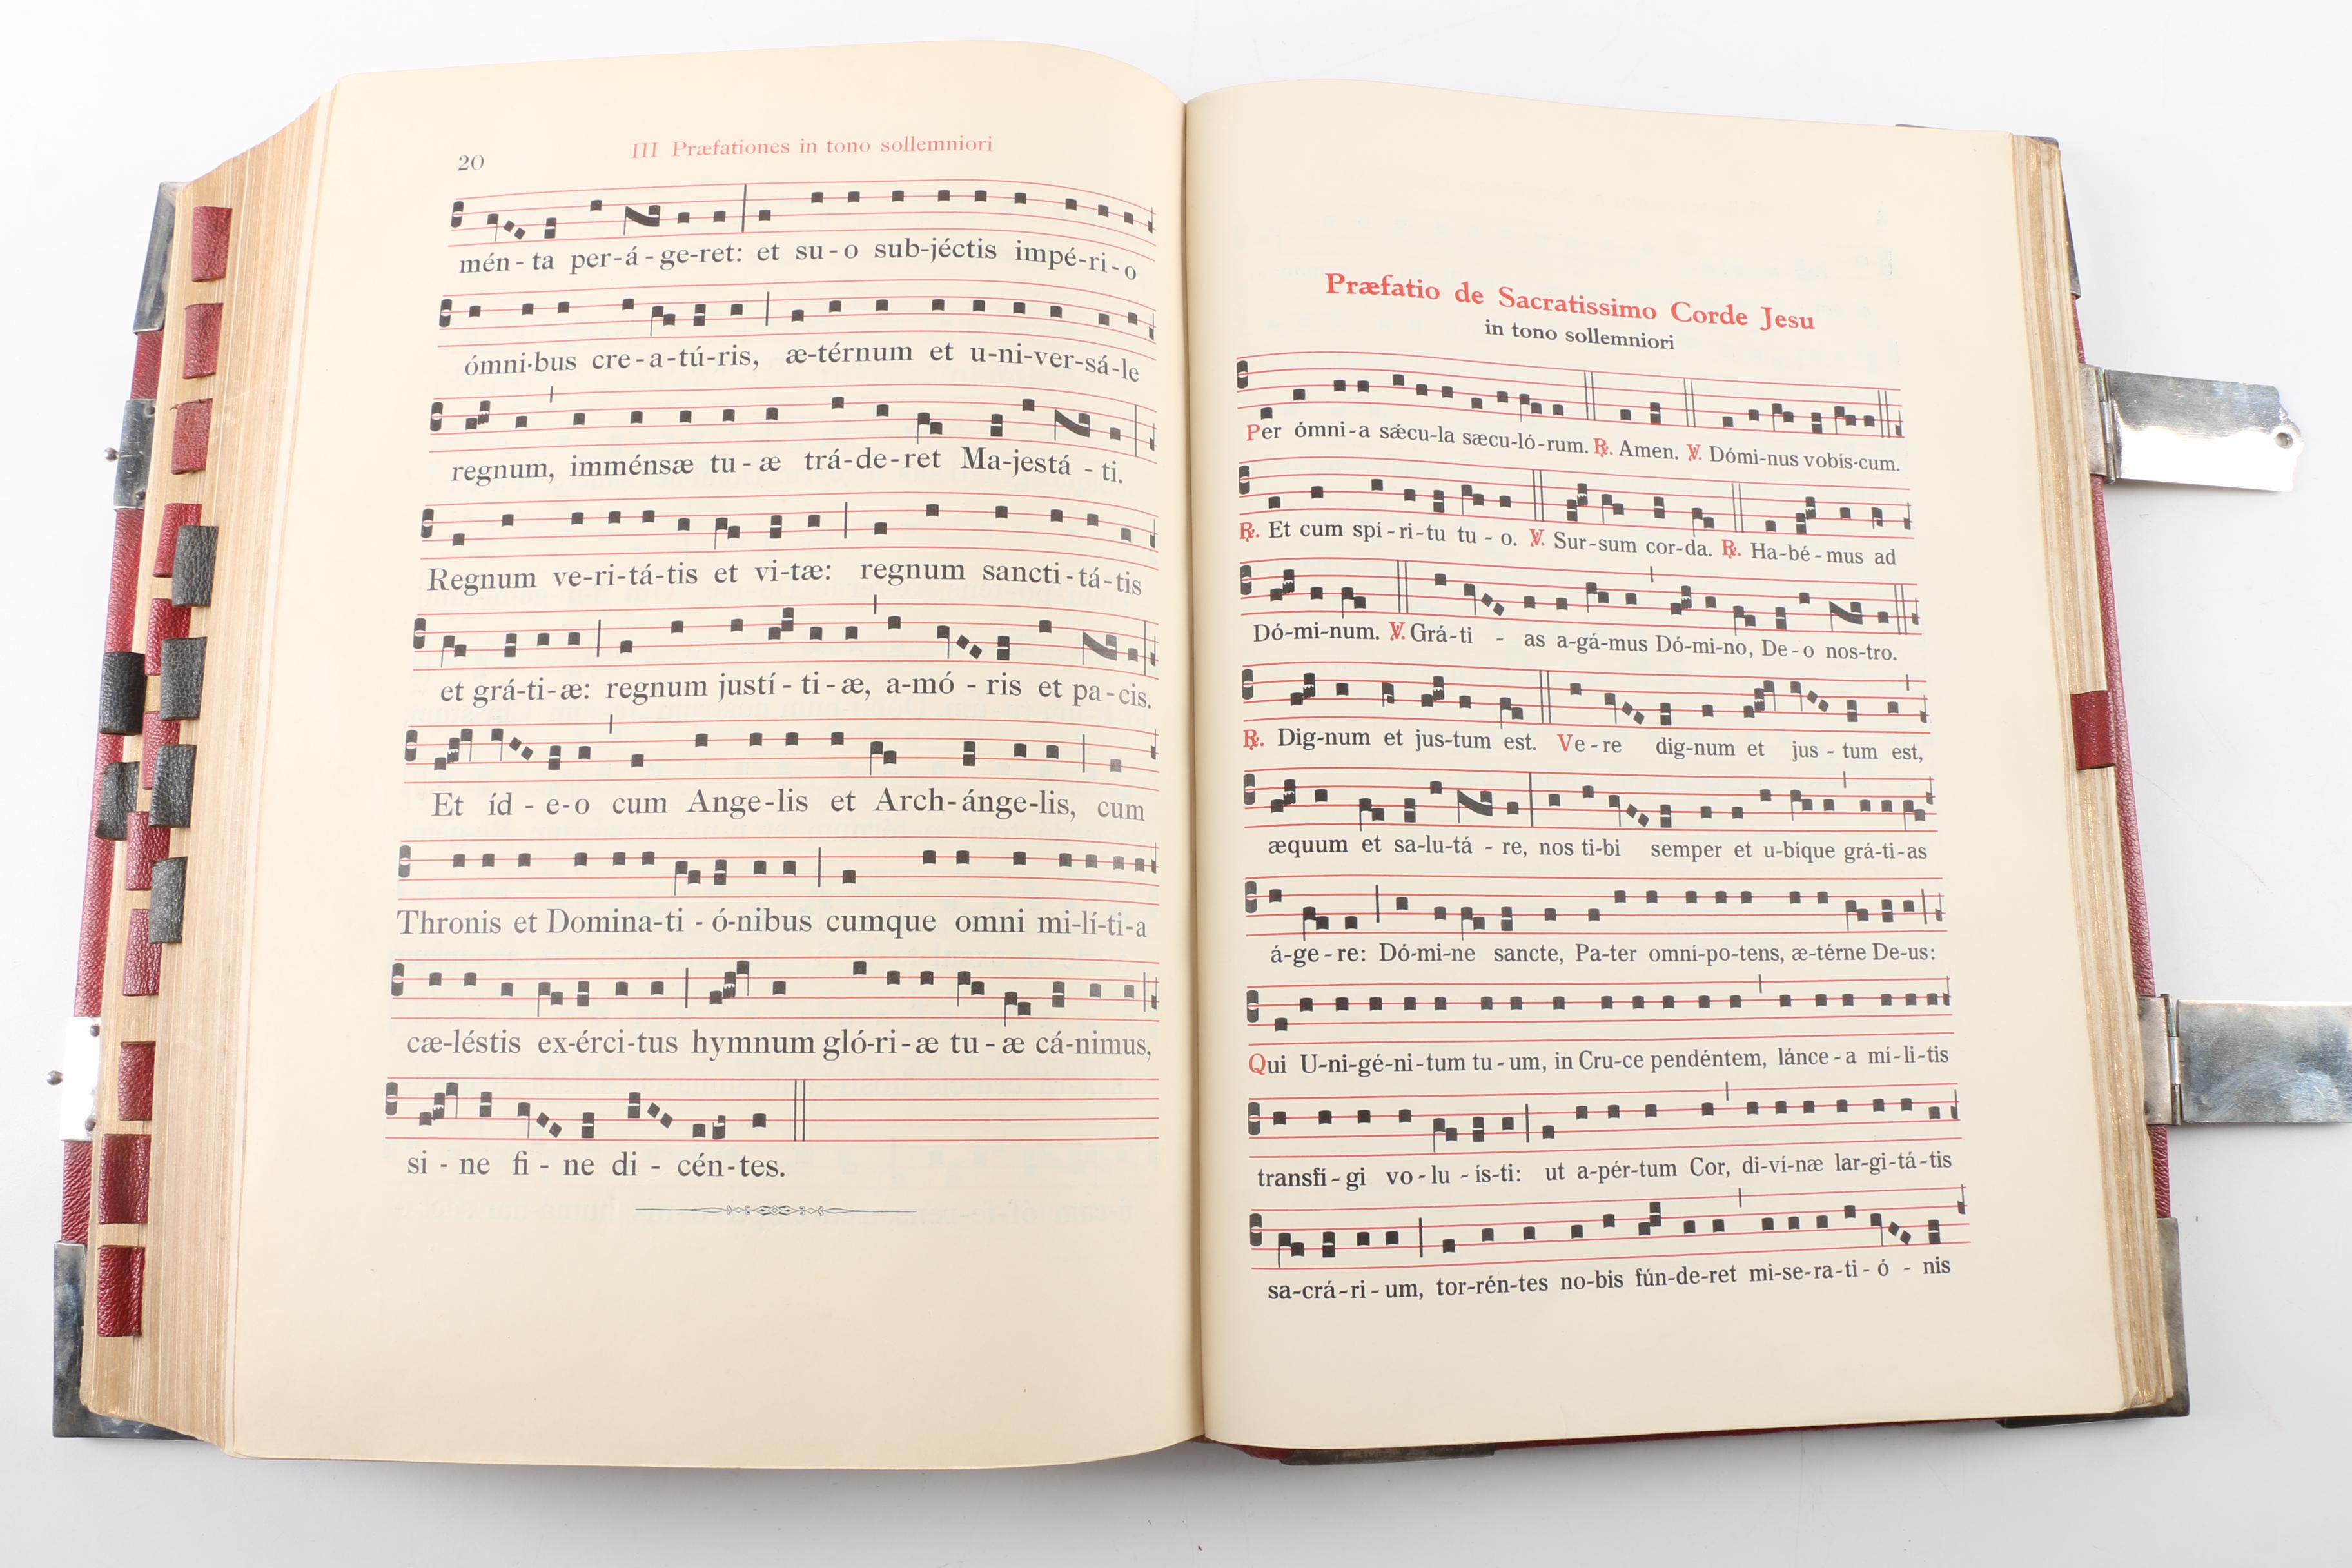 20
III Præfationes in tono sollemniori
mén - ta per-á - ge-ret: et su - o sub-jéctis impé-ri - o
ómni-bus cre - a - tú - ris, æ-térnum et u-ni-ver-sá-le
regnum, imménsæ tu - æ trá-de-ret Ma-jestá - ti.
Regnum ve-ri-tá-tis et vi-tæ: regnum sancti - tá - tis
et grá-ti-æ: regnum justí - ti - æ, a-mó - ris et pa - cis.
Et íd - e-o cum Ange-lis et Arch-ánge-lis, cum
Thronis et Domina-ti - ó-nibus cumque omni mi-lí-ti-a
cæ-léstis ex-érci-tus hymnum gló-ri-æ tu - æ cá-nimus,
si - ne fi - ne di - cén-tes.
Præfatio de Sacratissimo Corde Jesu
in tono sollemniori
Per ómni-a sǽcu-la sæcu-ló-rum. ℟. Amen. ℣. Dómi-nus vobis-cum.
℟. Et cum spí - ri - tu tu - o. ℣. Sur-sum cor-da. ℟. Ha-bé - mus ad
Dó-mi-num. ℣. Grá-ti - as a-gá-mus Dó-mi-no, De - o nos-tro.
℟. Dig-num et jus-tum est. Ve - re dig-num et jus - tum est,
æquum et sa-lu-tá - re, nos ti-bi semper et u-bique grá-ti-as
á-ge - re: Dó-mi-ne sancte, Pa-ter omní-po-tens, æ-térne De-us:
Qui U-ni-gé-ni-tum tu - um, in Cru-ce pendéntem, lánce - a mí-li-tis
transfí - gi vo - lu - ís-ti: ut a-pér-tum Cor, di-ví-næ lar-gi-tá-tis
sa-crá-ri - um, tor-rén-tes no-bis fún-de-ret mi-se-ra-ti - ó - nis